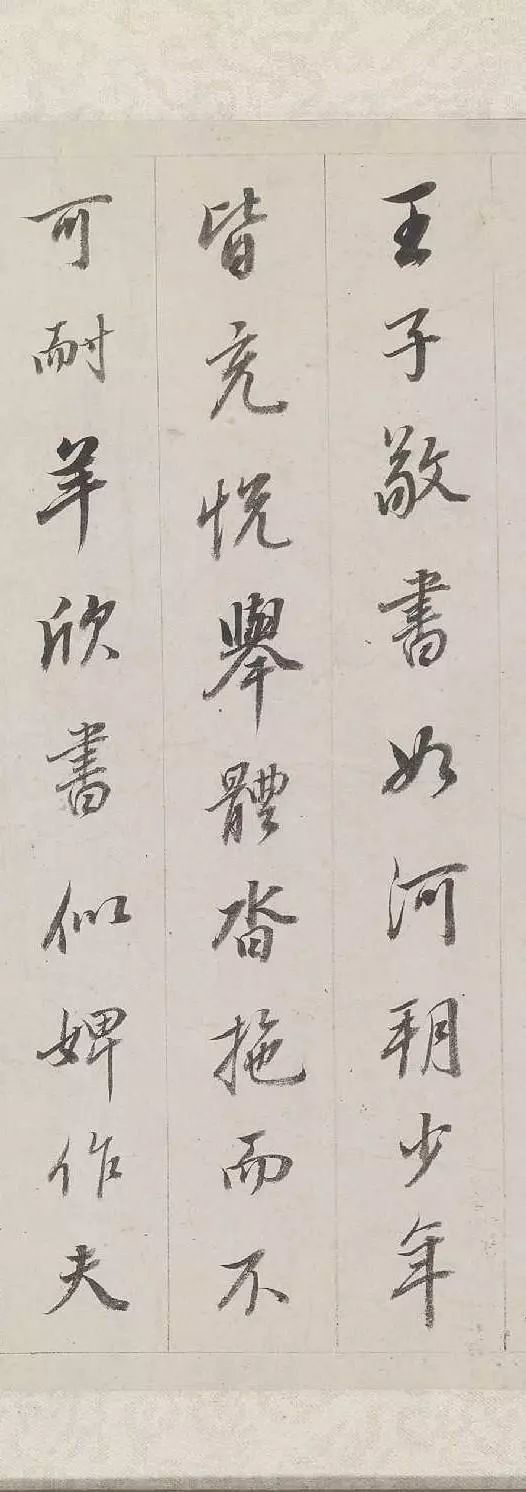 王子敬書如河朔少年
皆充悅舉體沓拖而不
可耐羊欣書似婢作夫